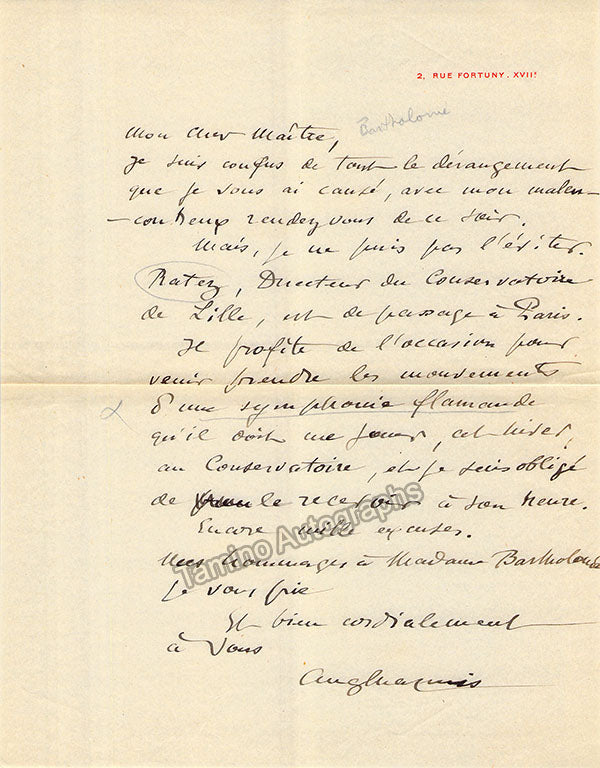 2, RUE FORTUNY. XVIIE
Bartholomé
Mon cher Maître,
Je suis confus de tout le dérangement
que je vous ai causé, avec mon malen-
-contreux rendez vous de ce soir.
Mais, je ne puis pas l'éviter.
Ratez, Directeur du Conservatoire
de Lille, est de passage à Paris.
Il profite de l'occasion pour
venir prendre les mouvements
d'une symphonie flamande
qu'il doit me jouer, cet hiver,
au Conservatoire, et je suis obligé
de le recevoir à son heure.
Encore mille excuses.
Mes hommages à Madame Bartholomé
je vous prie
Et bien cordialement
à Vous
Tamino Autographs